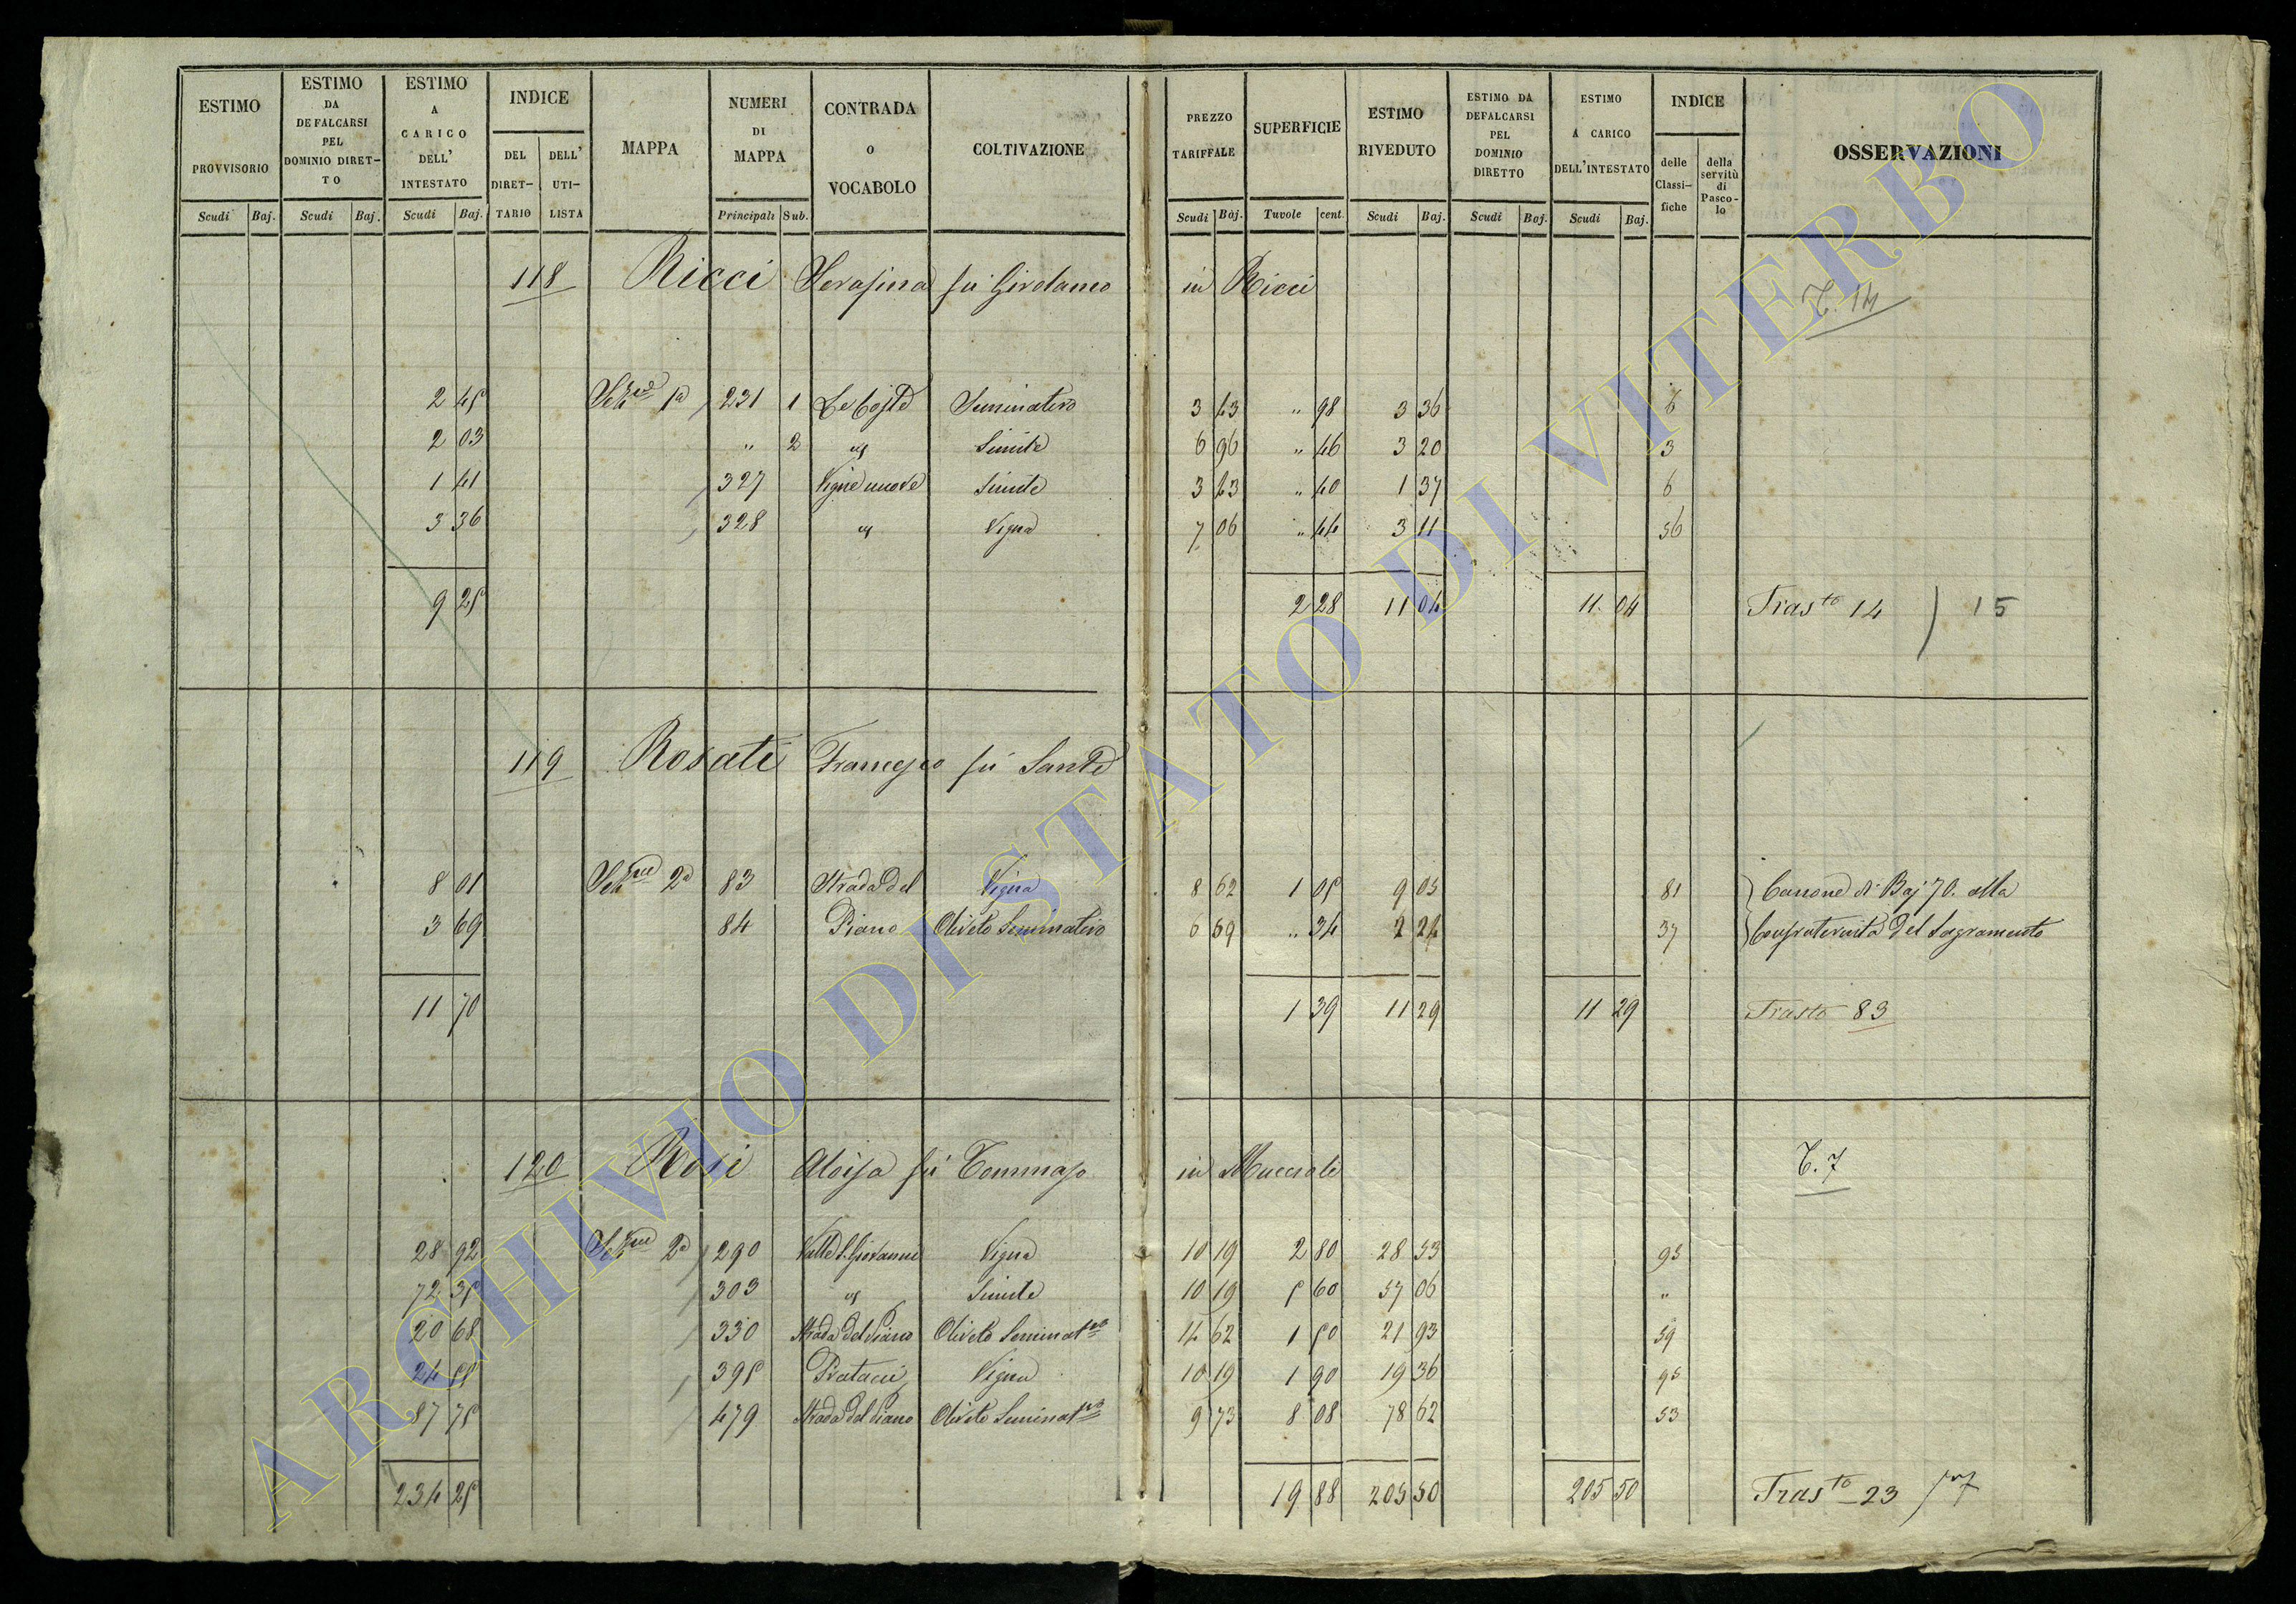 ESTIMO PROVVISORIO Scudi Baj.
ESTIMO DA DEFALCARSI PEL DOMINIO DIRET-TO Scudi Baj.
ESTIMO A CARICO DELL' INTESTATO Scudi Baj.
INDICE DEL DIRET-TARIO DELL' UTI-LISTA
MAPPA
NUMERI DI MAPPA Principali Sub.
CONTRADA O VOCABOLO
COLTIVAZIONE
PREZZO TARIFFALE Scudi Baj.
SUPERFICIE Tavole cent.
ESTIMO RIVEDUTO Scudi Baj.
ESTIMO DA DEFALCARSI PEL DOMINIO DIRETTO Scudi Baj.
ESTIMO A CARICO DELL'INTESTATO Scudi Baj.
INDICE delle Classi-fiche della servitù di Pasco-lo
OSSERVAZIONI
118 Ricci Serafina fù Girolamo in Ricci T. 14
2 45 Seze 1a 231 1 Le Coste Seminativo 3 43 " 98 3 36 6
2 03 " 2 Simile 6 96 " 46 3 20 3
1 41 327 Vigne nuove Simile 3 43 " 40 1 37 6
3 36 328 Vigna 7 06 " 44 3 11 56
9 25 2 28 11 04 11 04 Trasto 14 ) 15
119 Rosati Francesco fù Sante
8 01 Sezne 2a 83 Strada del Vigna 8 62 1 05 9 05 81 Canone di Baj 70. alla
3 69 84 Piano Oliveto Seminativo 6 59 " 34 2 24 37 Confraternita del Sagramento
11 70 1 39 11 29 11 29 Trasto 83
120 Rosi Aloisa fù Tommaso in T. 7
28 92 Sezne 2a 290 Valle S. Giovanni Vigna 10 19 2 80 28 53 95
72 35 303 Simile 10 19 5 60 57 06 "
20 68 330 Strada del Piano Oliveto Seminatvo 14 62 1 50 21 93 59
24 55 395 Vigna 10 19 1 90 19 36 95
87 75 479 Strada del Piano Oliveto Seminatvo 9 73 8 08 78 62 53
234 25 19 88 205 50 205 50 Trasto 23
ARCHIVIO DI STATO DI VITERBO